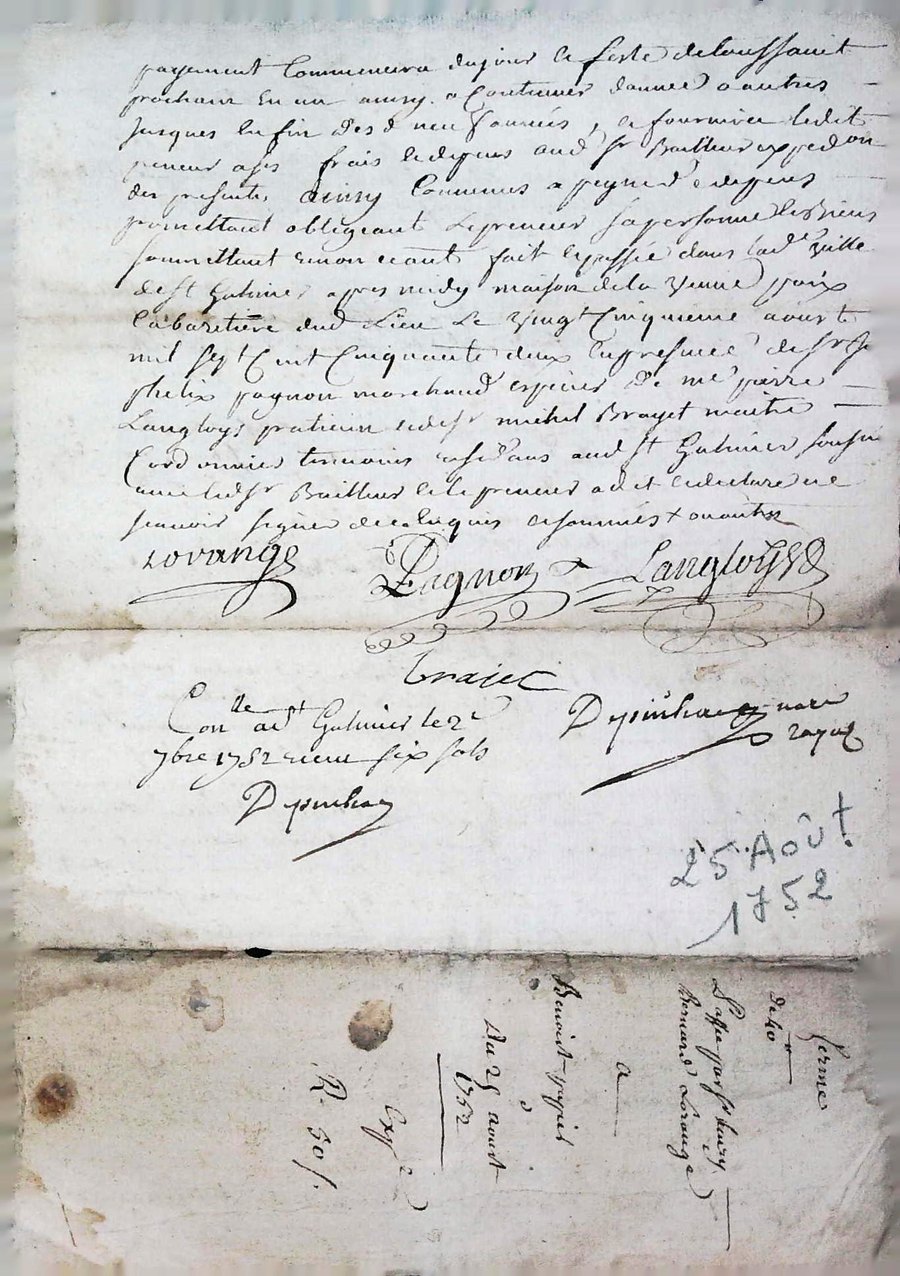 payement Commencera du jour & feste de toussaint
prochain En un an & ainsy a Continuer dannée a autres
jusques la fin desd neuf années, & fournira ledit
preneur a ses frais & depens aud Sr Bailleur expedon
des presentes ainsy Convenus a peyne d & depens
promettant obligeant le preneur sa personne & biens
soumettant renonceant fait & passée dans lad ville
de St Galmier apres midy maison de la veuve
Cabaretière dud Lieu Le vingt Cinquieme aoust
mil sept Cent Cinquante deux En presence de Sr
phelix pagnon marchand espicier & de me pierre
Langloys praticien & de Sr michel Brayet maitre
Cordonnier temoins aud St Galmier
avec led Sr Bailleur & le preneur a dit & declaré ne
scavoir signer de ce Enquis & sommés +
Lorange
Pagnon + Langloys
brajet
Conlle a St Galmier le 2e
7bre 1752 recu six sols
Depinhac
Depinhac nore
royal
25 Août
1752
ferme
de 40tt
passée par Sr
Bernard Lorange
a
Benoist
Du 25 aoust
1752
Expe
R. 50 s.